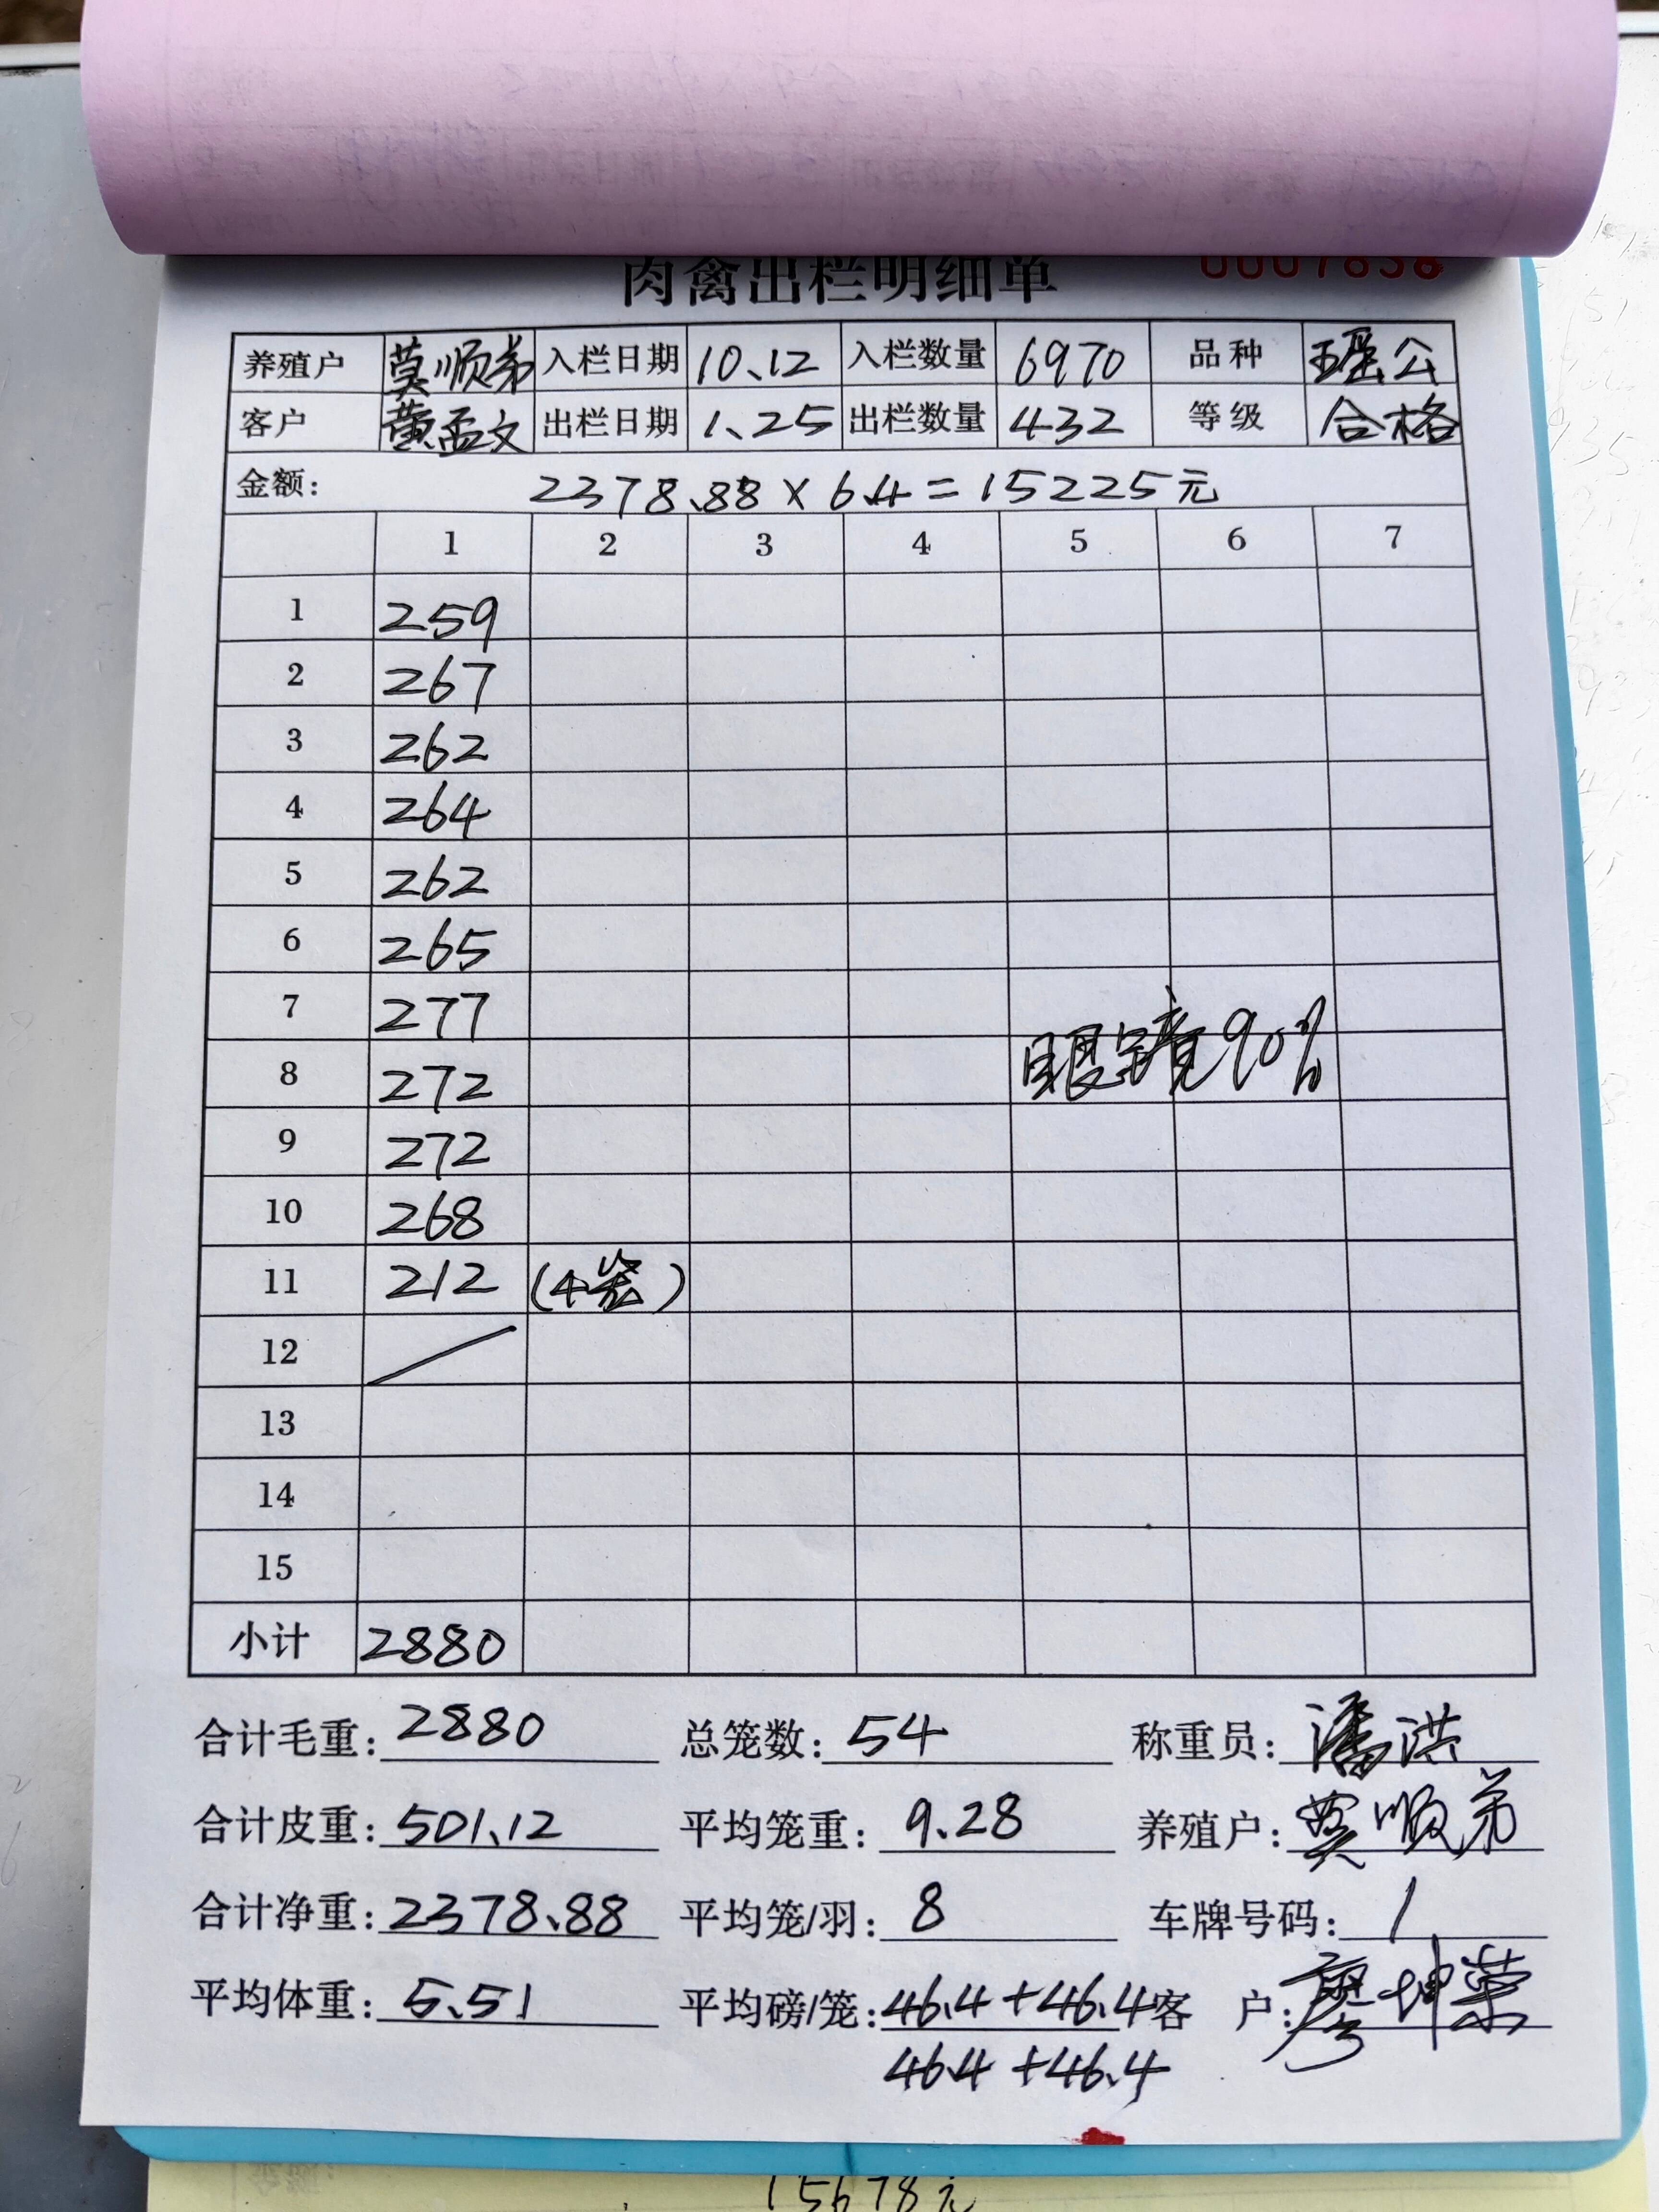 肉禽出栏明细单 0007838
养殖户 莫顺弟 入栏日期 10、12 入栏数量 6970 品种 瑶公
客户 黄孟文 出栏日期 1、25 出栏数量 432 等级 合格
金额： 2378.88 × 6.4 = 15225元
1 2 3 4 5 6 7
1 259
2 267
3 262
4 264
5 262
6 265
7 277
8 272 眼镜90%
9 272
10 268
11 212 (4笼)
12
13
14
15
小计 2880
合计毛重：2880 总笼数：54 称重员：潘洪
合计皮重：501、12 平均笼重：9.28 养殖户：莫顺弟
合计净重：2378、88 平均笼/羽：8 车牌号码：1
平均体重：5、51 平均磅/笼：46.4+46.4 客 户：廖坤荣
46.4+46.4
15678元